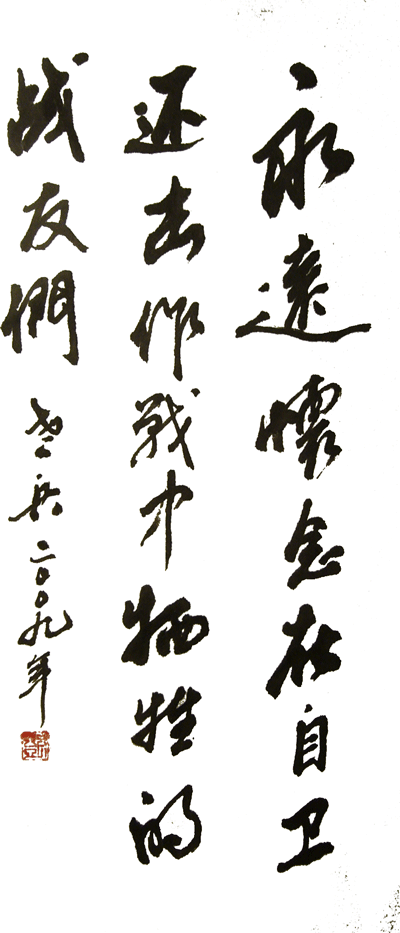 永遠懷念在自卫
还击作戰中牺牲的
战友們 老兵 二〇〇九年